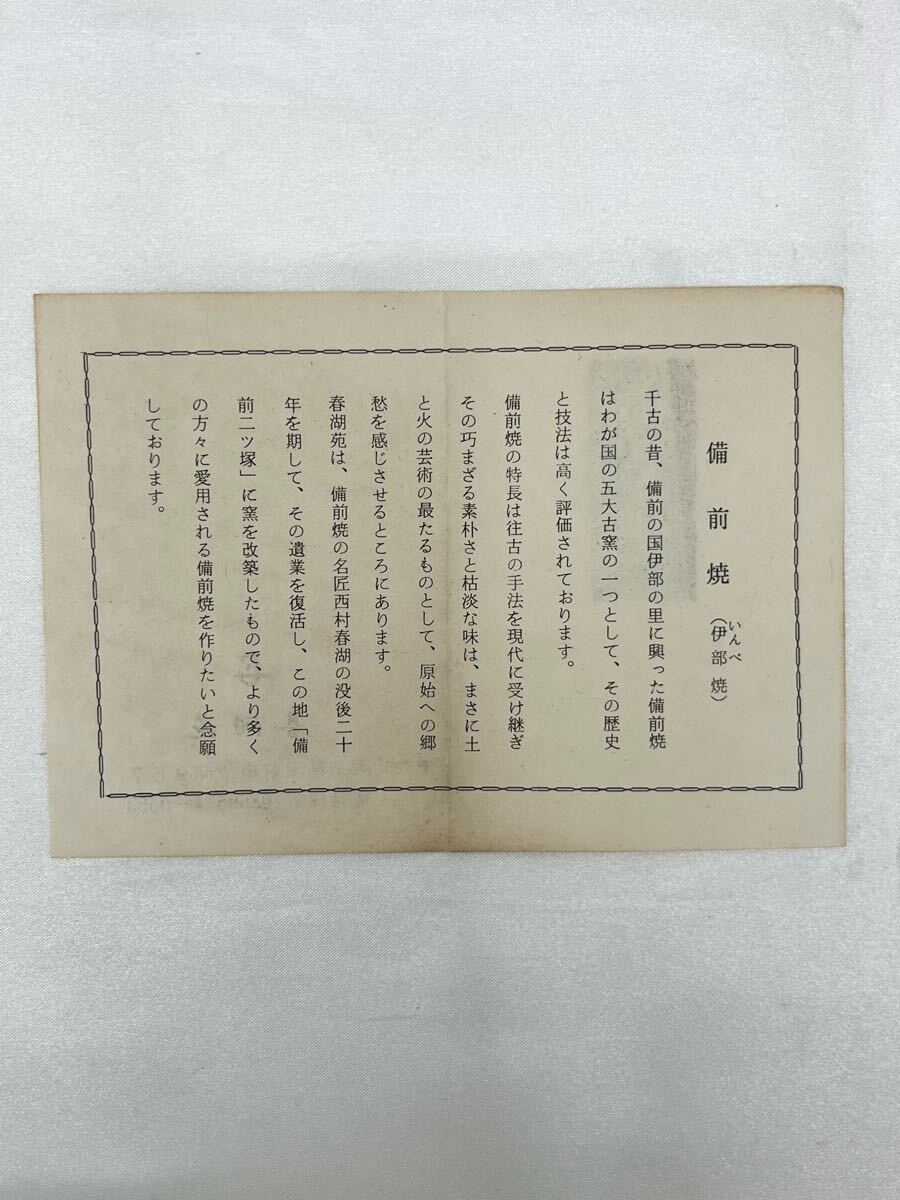 備前焼(伊部焼)
いんべ
千古の昔、備前の国伊部の里に興った備前焼
はわが国の五大古窯の一つとして、その歴史
と技法は高く評価されております。
備前焼の特長は往古の手法を現代に受け継ぎ
その巧まざる素朴さと枯淡な味は、まさに土
と火の芸術の最たるものとして、原始への郷
愁を感じさせるところにあります。
春湖苑は、備前焼の名匠西村春湖の没後二十
年を期して、その遺業を復活し、この地「備
前二ツ塚」に窯を改築したもので、より多く
の方々に愛用される備前焼を作りたいと念願
しております。